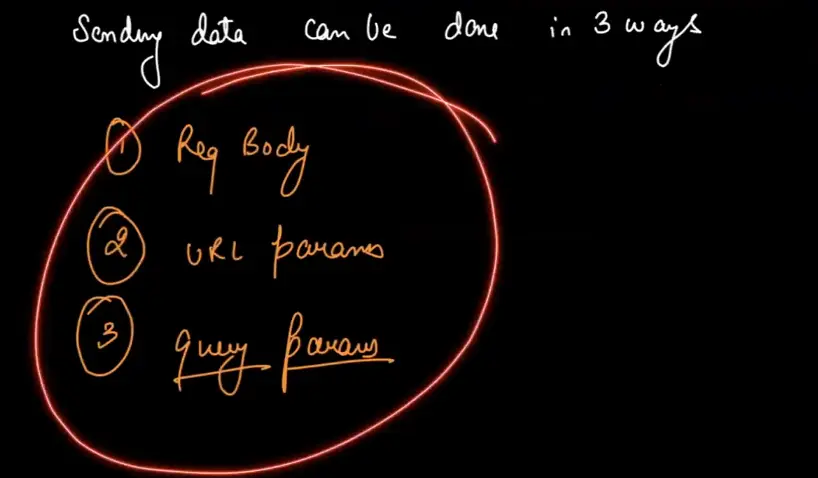 Sending data can be done in 3 ways
1 Req Body
2 URL params
3 query params